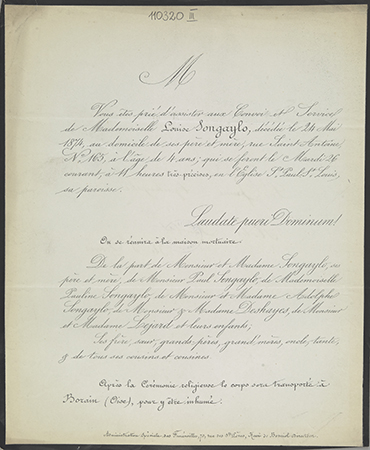 110320 III
M
Vous êtes prié d'assister aux Convoi et Service
de Mademoiselle Louise Songaylo, décédée le 24 Mai
1874, au domicile de ses père et mère, rue Saint Antoine
No 165, à l'âge de 4 ans; qui se feront le Mardi 26
courant, à 11 heures très-précises, en l'Eglise St Paul St Louis,
sa paroisse.
Laudate pueri Dominum!
On se réunira à la maison mortuaire.
De la part de Monsieur et Madame Songaylo, ses
père et mère, de Monsieur Paul Songaylo, de Mademoiselle
Pauline Songaylo, de Monsieur et Madame Adolphe
Songaylo, de Monsieur & Madame Deshayes, de Monsieur
et Madame Dejard et leurs enfants;
Ses frère, sœur, grands-pères, grand'mères, oncle, tante,
& de tous ses cousins et cousines
Après la Cérémonie religieuse le corps sera transporté à
(Oise), pour y être inhumé.
Administration Spéciale des Funérailles, rue